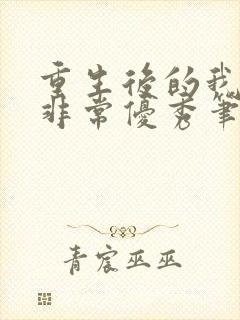 重生後的我
非常優秀筆
青宸巫巫